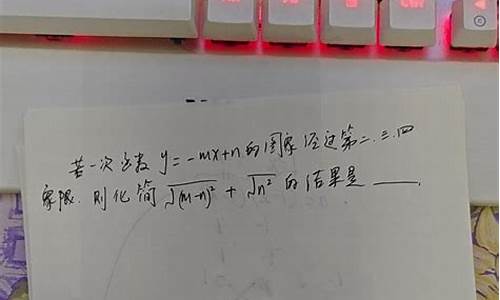 若一次函数 y=-mx+n的图象经过第二.三.四
象限.则化简 √(m-n)² + √n² 的结果是 ____.